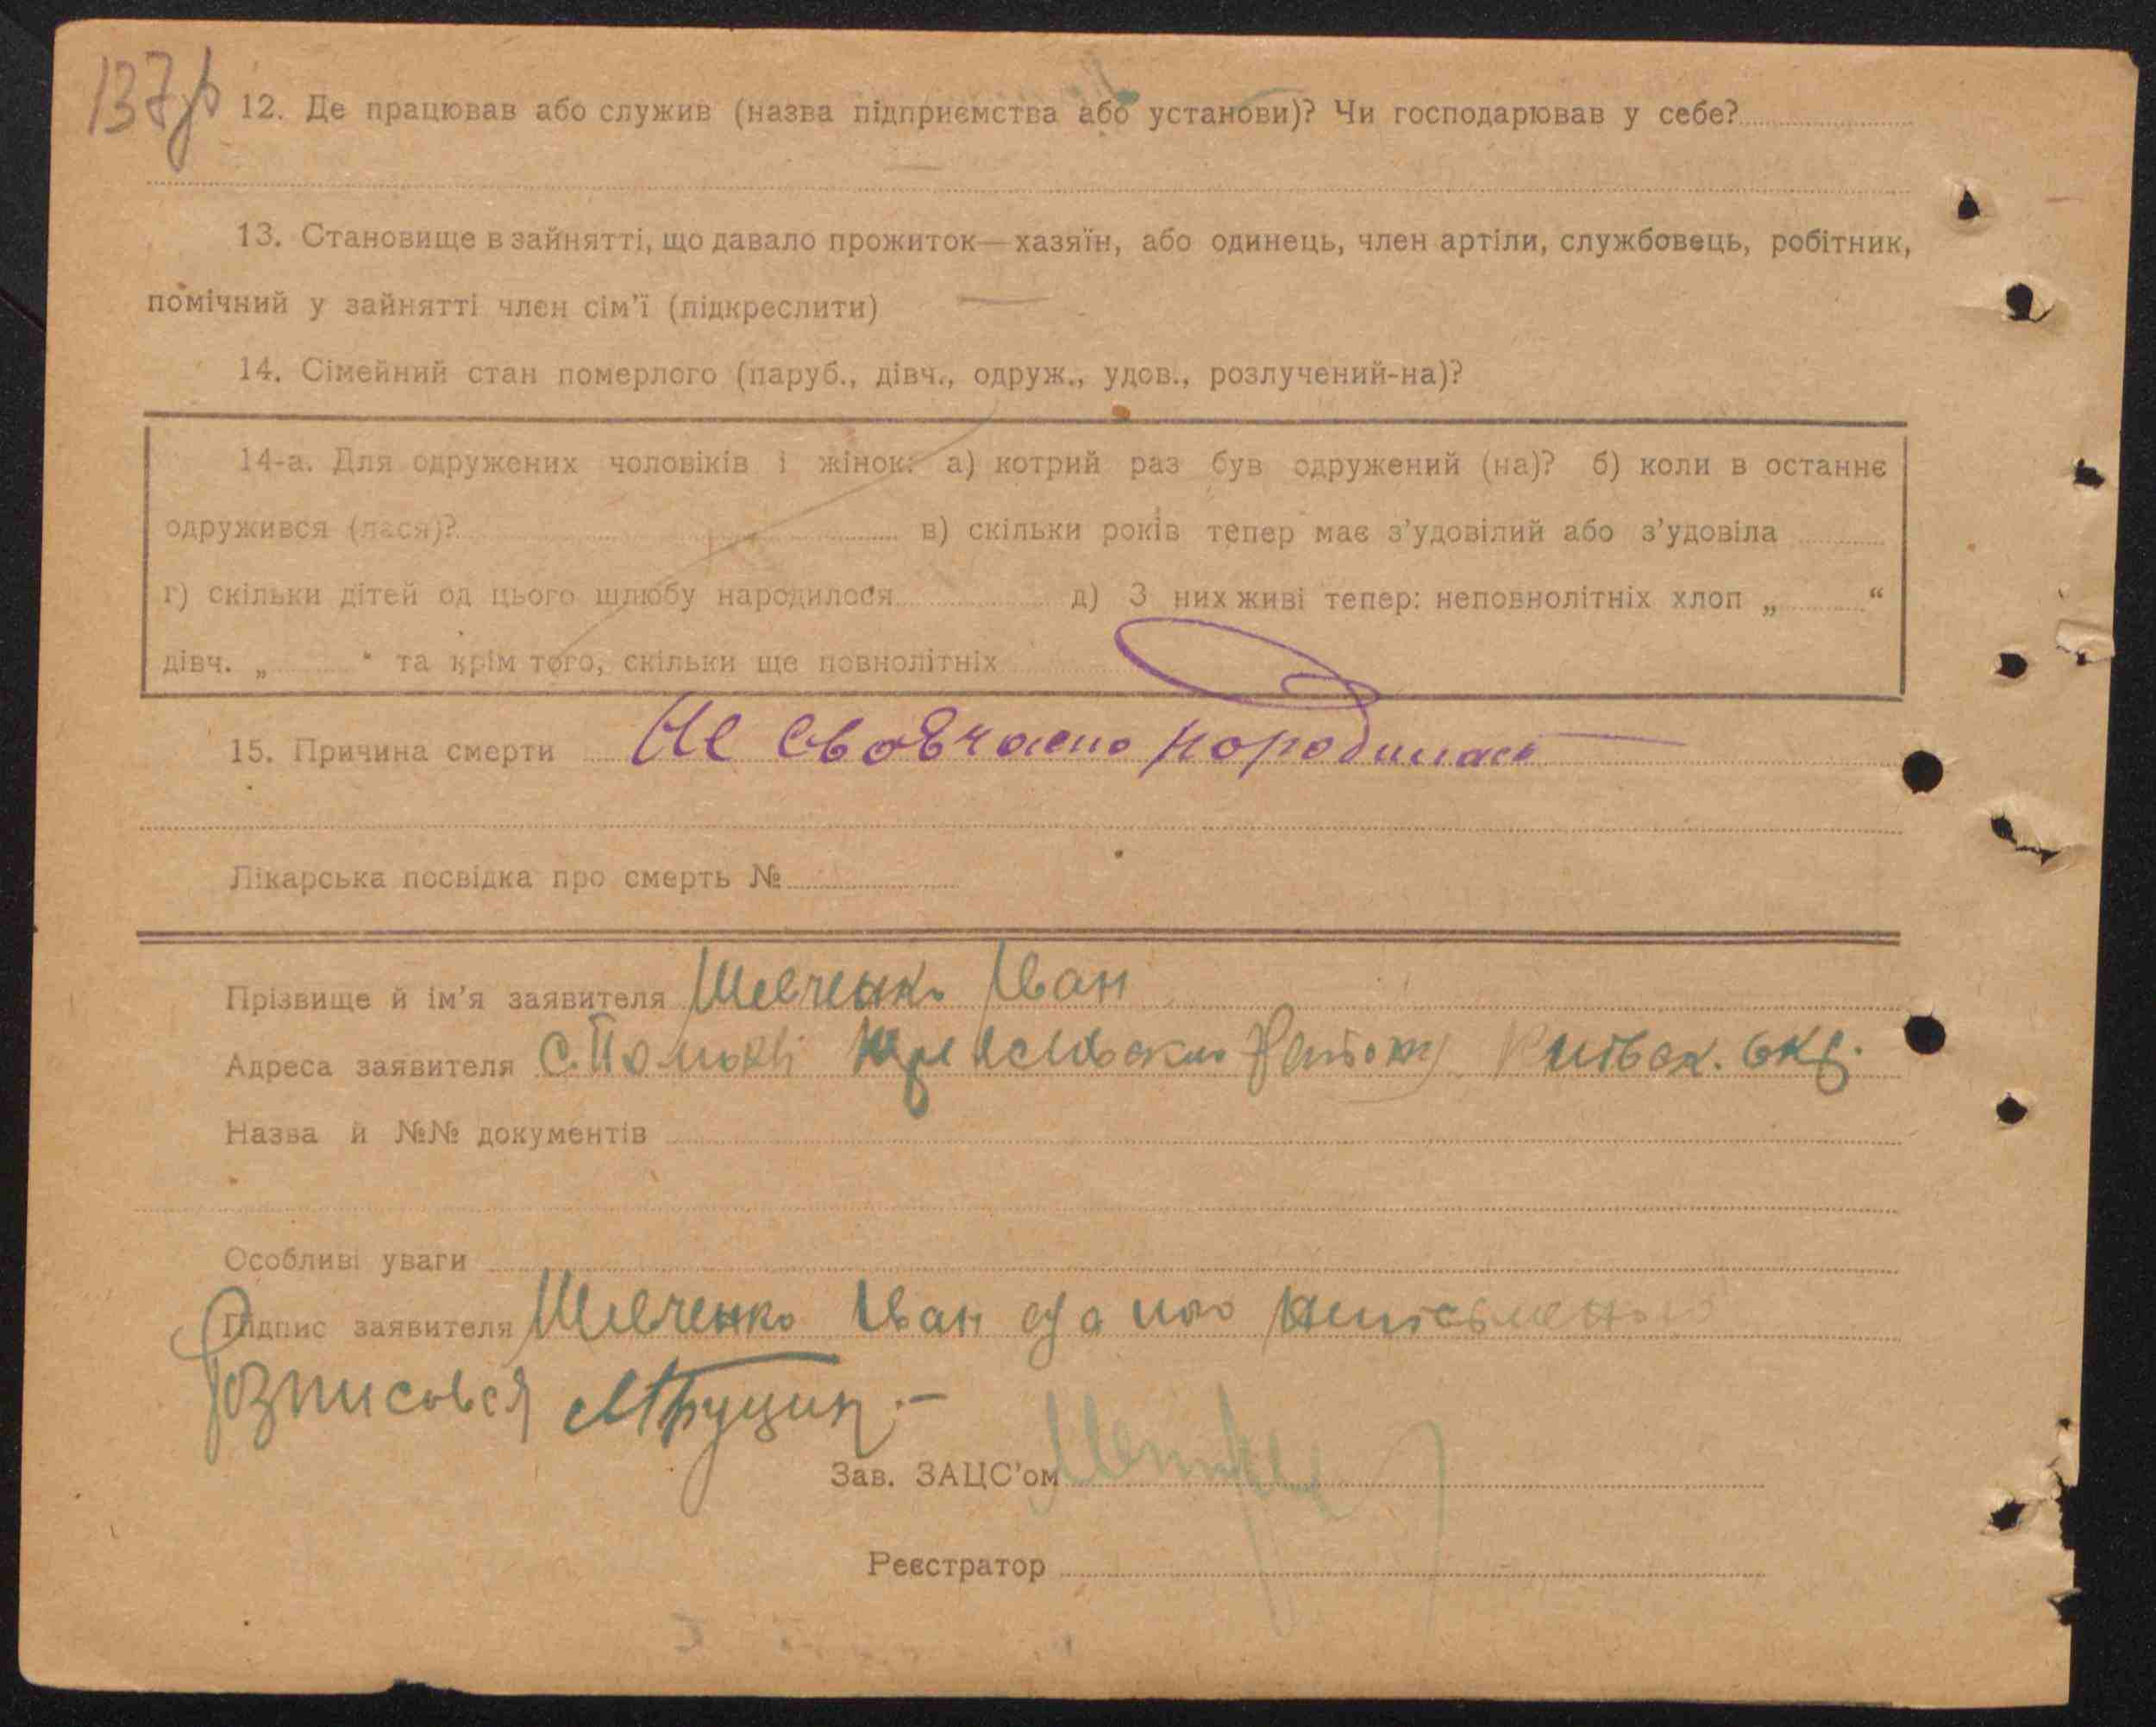 12. Де працював або служив (назва підприємства або установи)? Чи господарював у себе?
13. Становище в зайнятті, що давало прожиток—хазяїн, або одинець, член артіли, службовець, робітник,
помічний у зайнятті член сім'ї (підкреслити)
14. Сімейний стан померлого (паруб., дівч., одруж., удов., розлучений-на)?
14-а. Для одружених чоловіків і жінок: а) котрий раз був одружений (на)? б) коли в останнє
одружився (лася)? в) скільки років тепер має з'удовілий або з'удовіла
г) скільки дітей од цього шлюбу народилося д) З них живі тепер: неповнолітніх хлоп „ “
дівч. „ “ та крім того, скільки ще повнолітніх
15. Причина смерти Не своєчасно народилась
Лікарська посвідка про смерть №
Прізвище й ім'я заявителя Шевченко Іван
Адреса заявителя с. району Київськ. окр.
Назва й №№ документів
Особливі уваги
Підпис заявителя Шевченко Іван
Розписовся
Зав. ЗАЦС'ом
Реєстратор